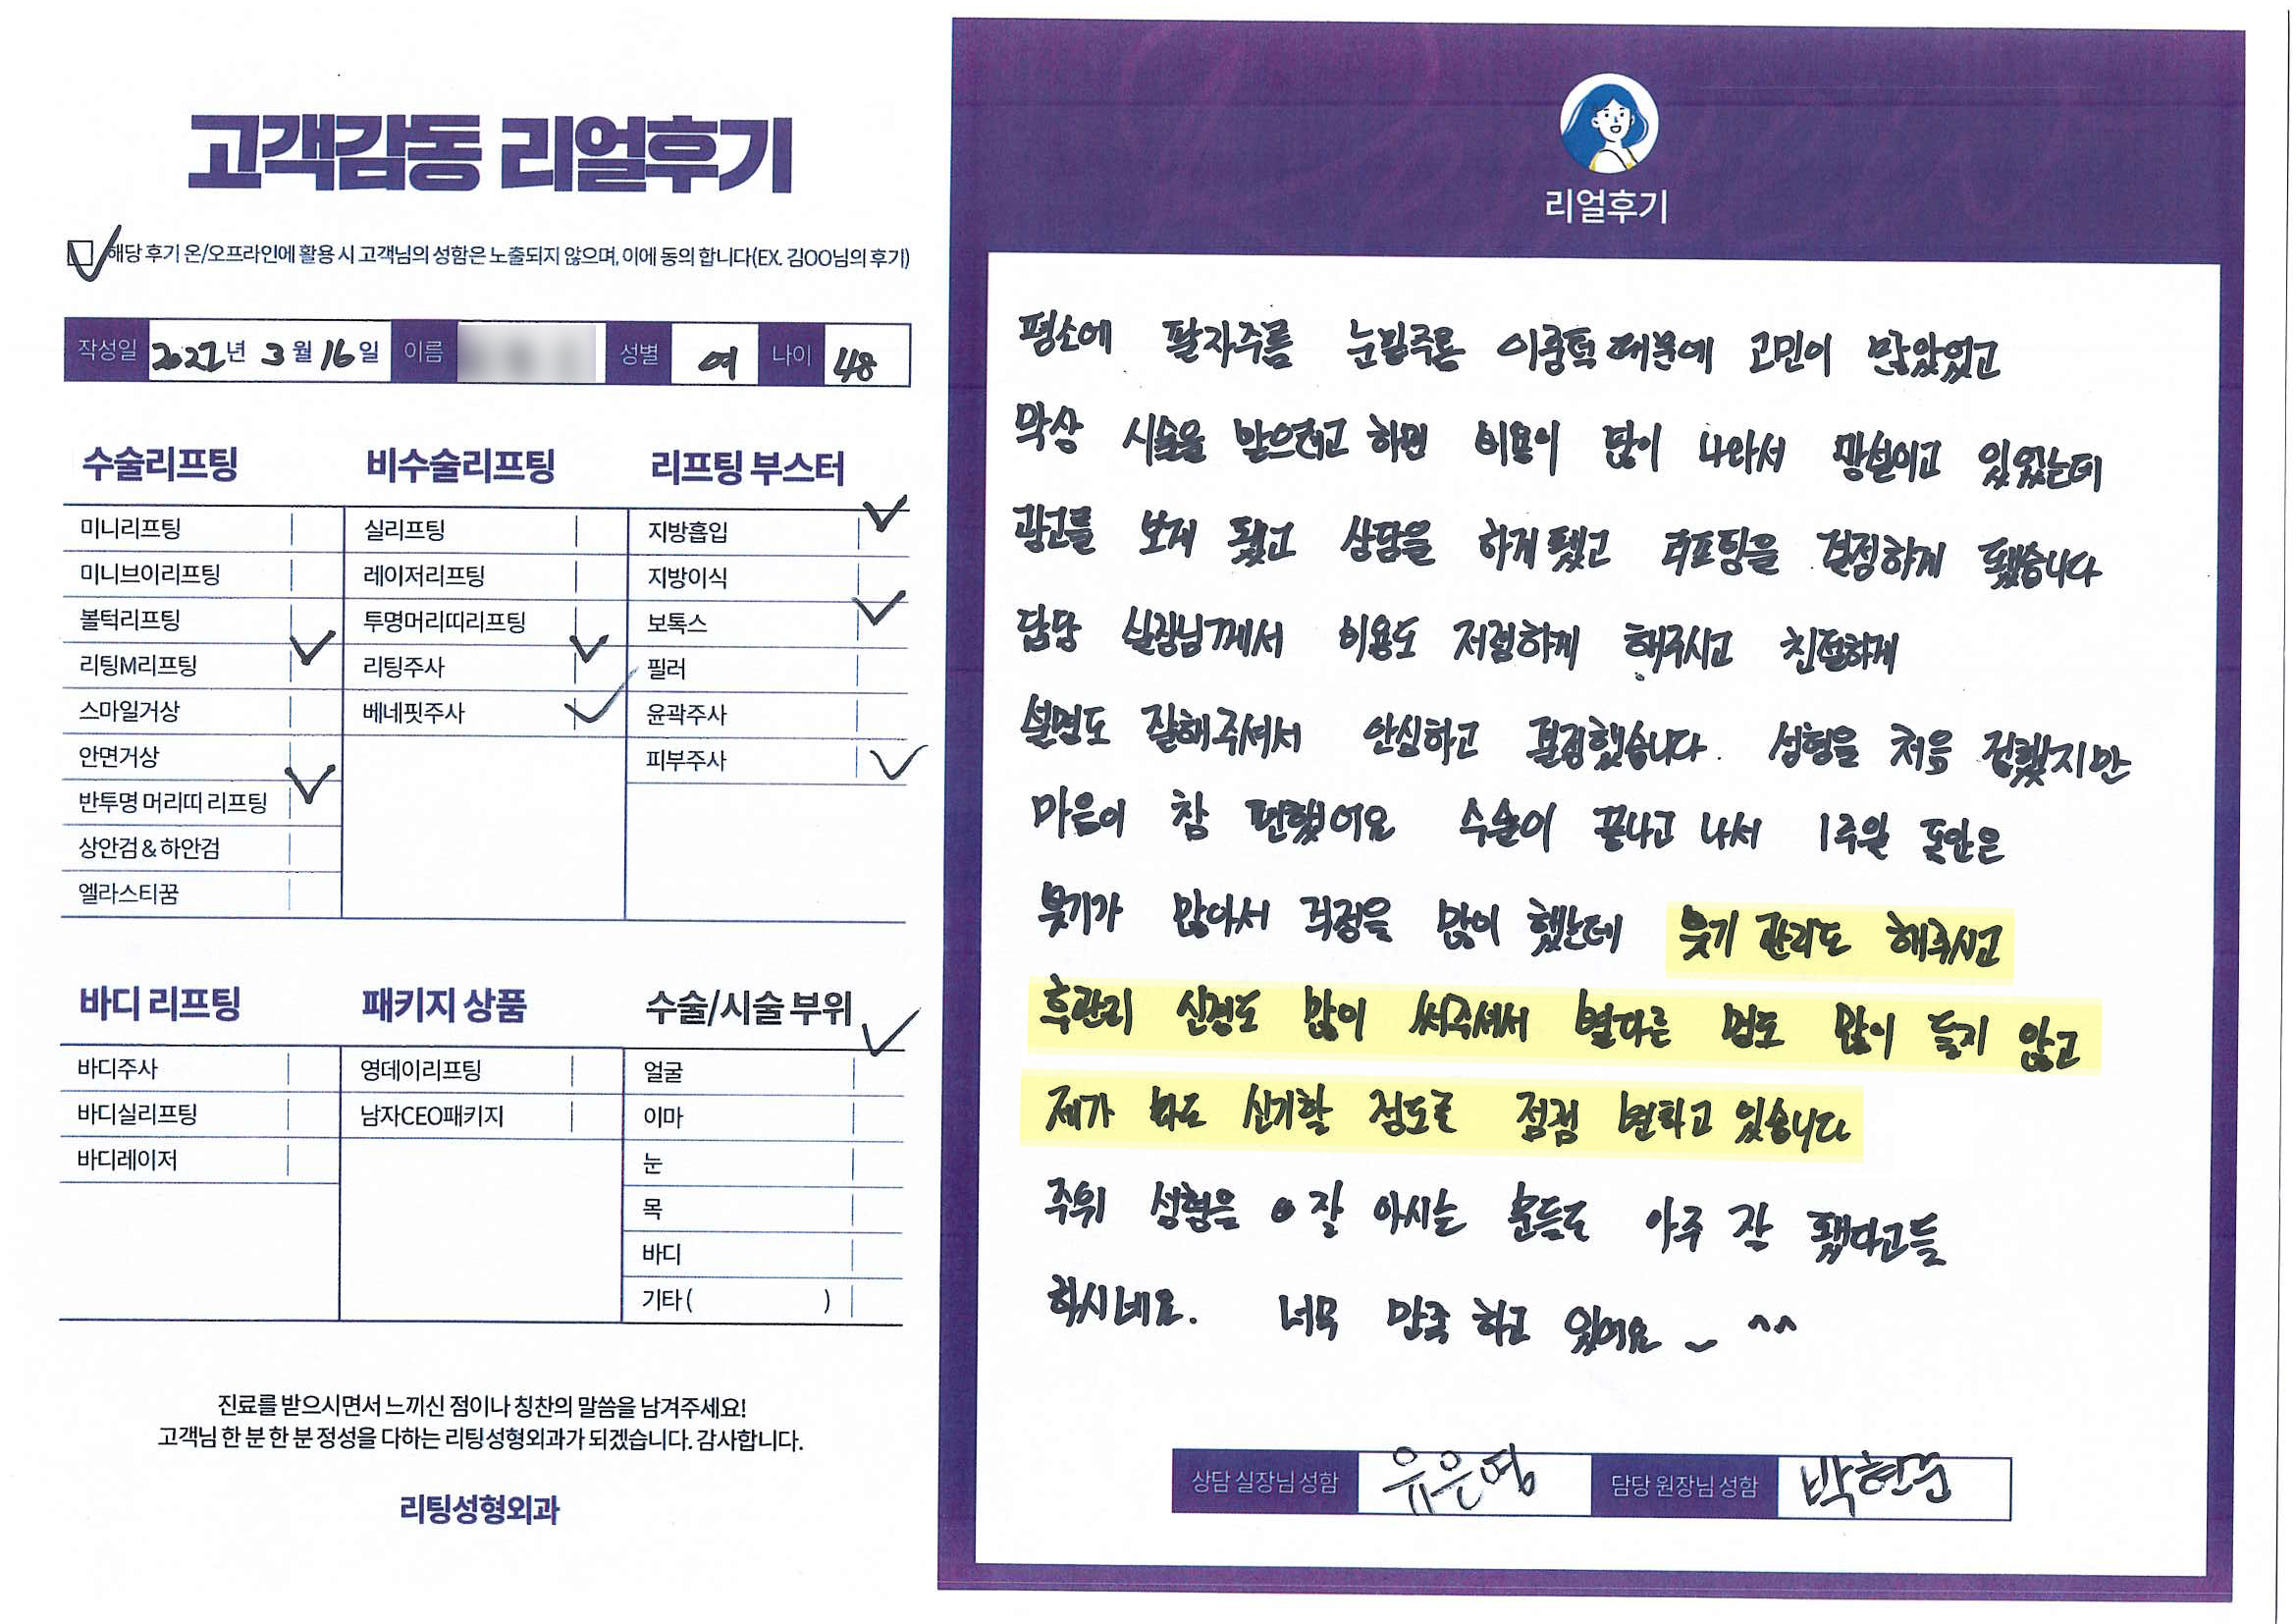 고객감동 리얼후기
해당 후기 온/오프라인에 활용 시 고객님의 성함은 노출되지 않으며, 이에 동의 합니다(EX. 김OO님의 후기)
작성일 2022년 3월 16일 이름 성별 여 나이 48
수술리프팅
미니리프팅
미니브이리프팅
볼턱리프팅
리팅M리프팅
스마일거상
안면거상
반투명 머리띠 리프팅
상안검 & 하안검
엘라스티꿈
비수술리프팅
실리프팅
레이저리프팅
투명머리띠리프팅
리팅주사
베네핏주사
리프팅 부스터
지방흡입
지방이식
보톡스
필러
윤곽주사
피부주사
바디 리프팅
바디주사
바디실리프팅
바디레이저
패키지 상품
영데이리프팅
남자CEO패키지
수술/시술 부위
얼굴
이마
눈
목
바디
기타 ( )
진료를 받으시면서 느끼신 점이나 칭찬의 말씀을 남겨주세요!
고객님 한 분 한 분 정성을 다하는 리팅성형외과가 되겠습니다. 감사합니다.
리팅성형외과
리얼후기
평소에 팔자주름 눈밑주름 이중턱 때문에 고민이 많았었고
막상 시술을 받으려고 하면 비용이 많이 나와서 망설이고 있었는데
광고를 보게 됐고 상담을 하게 됐고 리프팅을 결정하게 됐습니다
담당 실장님께서 비용도 저렴하게 해주시고 친절하게
설명도 잘해주셔서 안심하고 결정했습니다. 성형을 처음 접했지만
마음이 참 편했어요 수술이 끝나고 나서 1주일 동안은
붓기가 많아서 걱정을 많이 했는데 붓기 관리도 해주시고
후관리 신경도 많이 써주셔서 별다른 멍도 많이 들지 않고
제가 봐도 신기할 정도로 점점 변하고 있습니다
주위 성형을 잘 아시는 분들도 아주 잘 됐다고들
하시네요. 너무 만족 하고 있어요 ~ ^^
상담 실장님 성함 유은영 담당 원장님 성함 박현준